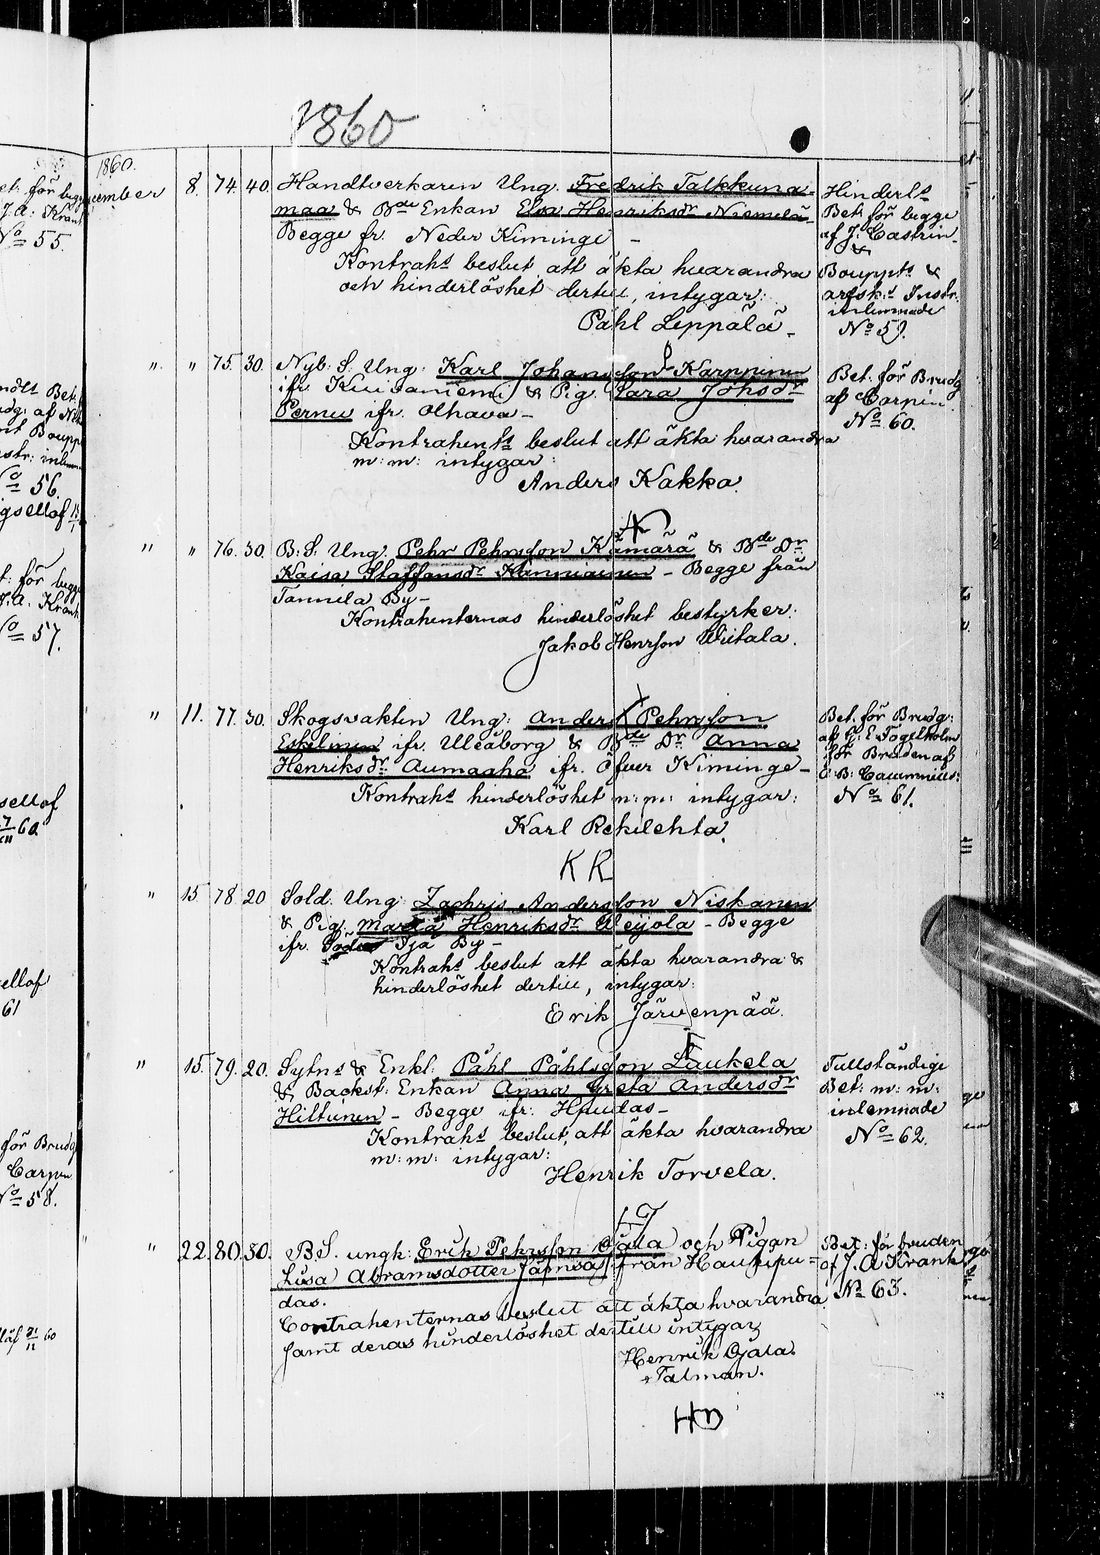 1860
1860.
8. 74. 40. Handtverkaren Ung. Fredrik Talkkuna=
maa & Bde Enkan Elsa Henriksdr Niemelä
Begge fr. Neder Kiminge –
Kontrahs beslut att äkta hvarandra
och hinderlöshet dertill, intygar:
Påhl Leppälä
Hinderlts
Bet. för begge
af J. Castrin
&
Bouppts &
arfsk:s Instr.
inlemnade
No 59.
" " 75. 30. Nyb. S. Ung. Karl Johansson Karppinen
ifr. Kuivaniemi & Pig. Sara Johsdr
Pernu ifr. Olhava –
Kontrahents beslut att äkta hvarandra
m: m: intygar:
Anders Kakka.
Bet. för Brudg
af Carpin.
No 60.
" " 76. 30. B. S. Ung. Pehr Pehrsson Kämärä & Bde Dr
Kaisa Staffansdr – Begge från
Tannila By –
Kontrahenternas hinderlöshet bestyrker:
Jakob Henrsson Wiitala.
" 11. 77. 30. Skogsvakten Ung: Anders Pehrsson
Eskelinen ifr. Uleåborg & Bde Dr Anna
Henriksdr Aumaaho ifr. Öfver Kiminge –
Kontrahs hinderlöshet m: m: intygar:
Karl Rekilehto.
K R
Bet. för Brudg:
af G: E. Togelholm
för Bruden af
No 61.
" 15 78. 20 Sold. Ung: Zachris Andersson Niskanen
& Pig. Maria Henriksdr Weijola – Begge
ifr. Ijå By –
Kontrahs beslut att äkta hvarandra &
hinderlöshet dertill, intygar:
Erik Järvenpää.
" 15. 79. 20. Sytns & Enkl: Påhl Påhlsson Laukela
& Backst: Enkan Anna Greta Andersdr
Hiltunen – Begge ifr: Haudas –
Kontrahs beslut, att äkta hvarandra
m: m: intygar:
Henrik Torvela.
Fullständige
Bet: m: m:
inlemnade
No 62.
" 22. 80. 30. B.S. ungk: Erik Pehrsson Ojala och Pigan
Lisa Abramsdotter från Haukipu=
das.
Contrahenternas beslut att äkta hvarandra
samt deras hinderlöshet dertill intygar
Henrik Ojala.
Talman.
Bet: för bruden
af J. A Krank
No 63.